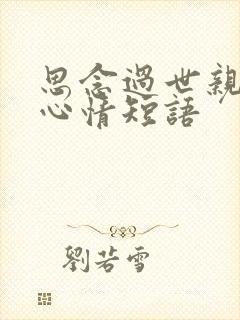 思念過世親
心情短語
劉若雪